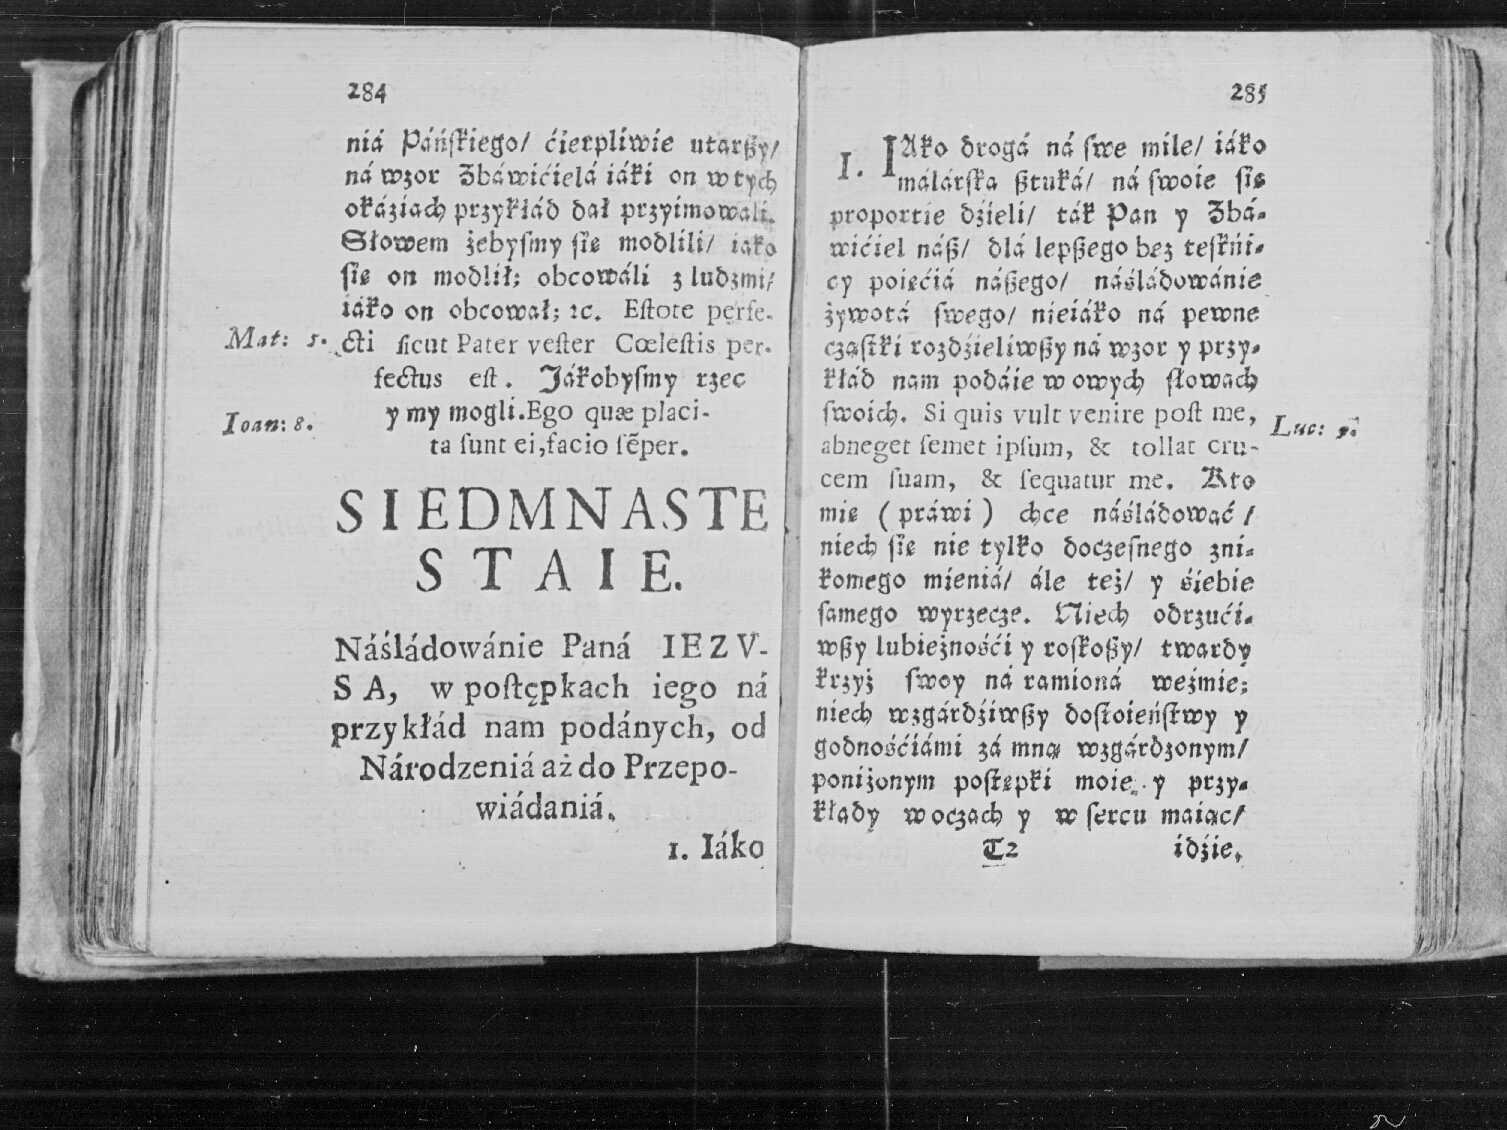 284
niá Páńſkiego/ ćierpliwie utarßy/
ná wzor Zbáwićielá iáki on w tych
okáziach przykład dał przyimowali.
Słowem żebyſmy ſię modlili/ iako
ſię on modlił; obcowáli z ludzmi/
iáko on obcował; ⁊c. Eſtote perfe-
Mat: 5. cti ſicut Pater veſter Cœleſtis per-
fectus eſt. Jákobyſmy rzec
Ioan: 8. y my mogli. Ego quæ placi-
ta ſunt ei, facio ſẽper.
SIEDMNASTE
STAIE.
Náśládowánie Paná IEZV-
SA, w poſtępkach iego ná
przykłád nam podánych, od
Národzeniá aż do Przepo-
wiádaniá.
1. Iáko
285
I. IAko drogá ná ſwe mile/ iáko
málárſka ßtuká/ ná ſwoie ſię
proportie dźieli/ ták Pan y Zbá-
wićiel náß/ dlá lepßego bez teſkńi-
cy poięćiá náßego/ náśládowánie
żywotá ſwego/ nieiáko ná pewne
cząſtki rozdźieliwßy ná wzor y przy-
kłád nam podáie w owych ſłowach
ſwoich. Si quis vult venire poſt me,
Luc: 9.
abneget ſemet ipſum, & tollat cru-
cem ſuam, & ſequatur me. Kto
mię (práwi) chce náśládować/
niech ſię nie tylko doczeſnego zni-
komego mieniá/ ále też/ y śiebie
ſamego wyrzecze. Niech odrzući-
wßy lubieżnośći y roſkoßy/ twardy
krzyż ſwoy ná ramioná weźmie;
niech wzgárdźiwßy doſtoieńſtwy y
godnośćiámi zá mną wzgárdzonym/
poniżonym poſtępki moie y przy-
kłady w oczach y w ſercu maiąc/
T2 idźie,